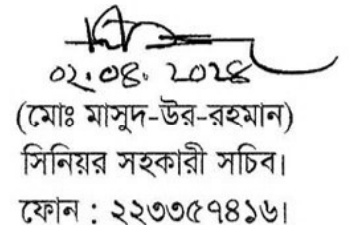 ০২.০৪.২০২৪
(মোঃ মাসুদ-উর-রহমান)
সিনিয়র সহকারী সচিব।
ফোন : ২২৩৩৫৭৪১৬।